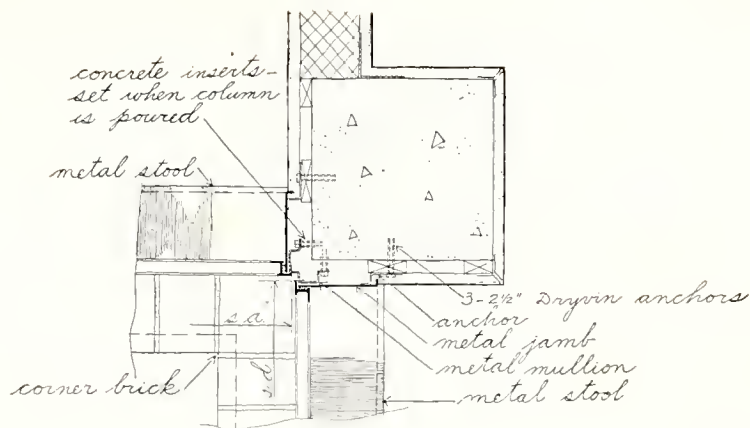 concrete inserts-
set when column
is poured
metal stool
3-2½" Dryvin anchors
anchor
metal jamb
metal mullion
metal stool
s.a.
s.d.
corner brick